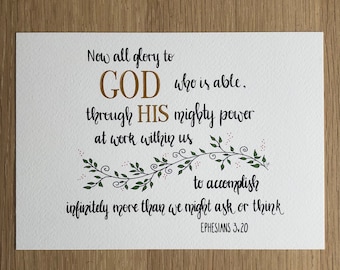 Now all glory to
GOD who is able,
through HIS mighty power
at work within us
to accomplish
infinitely more than we might ask or think
EPHESIANS 3:20